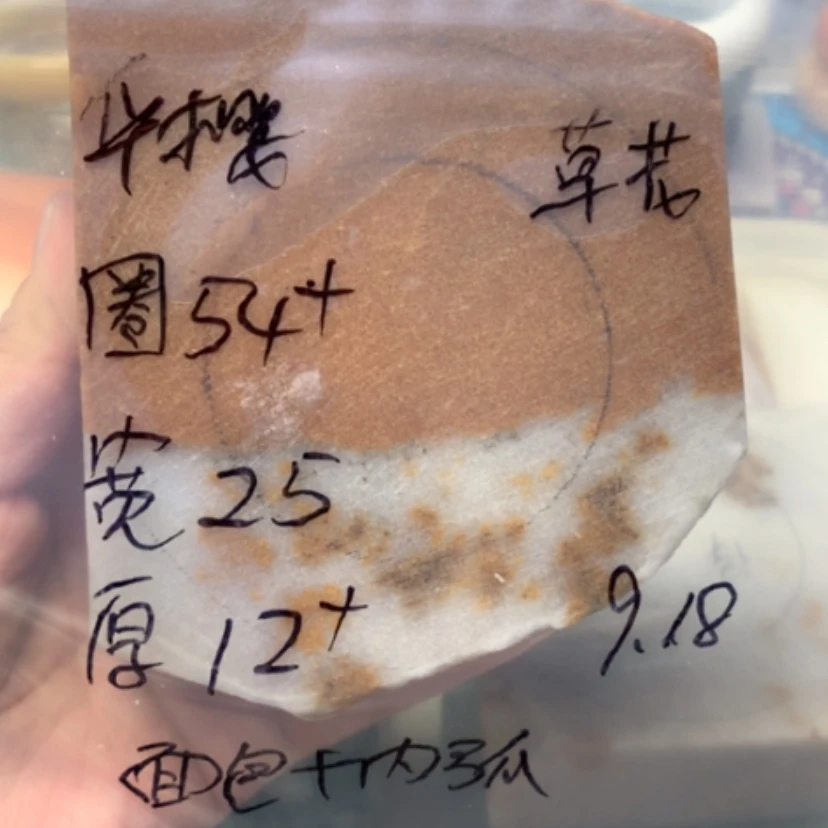 华樱 草花
圈54+
宽25
厚12+
9.18
面包+内弧